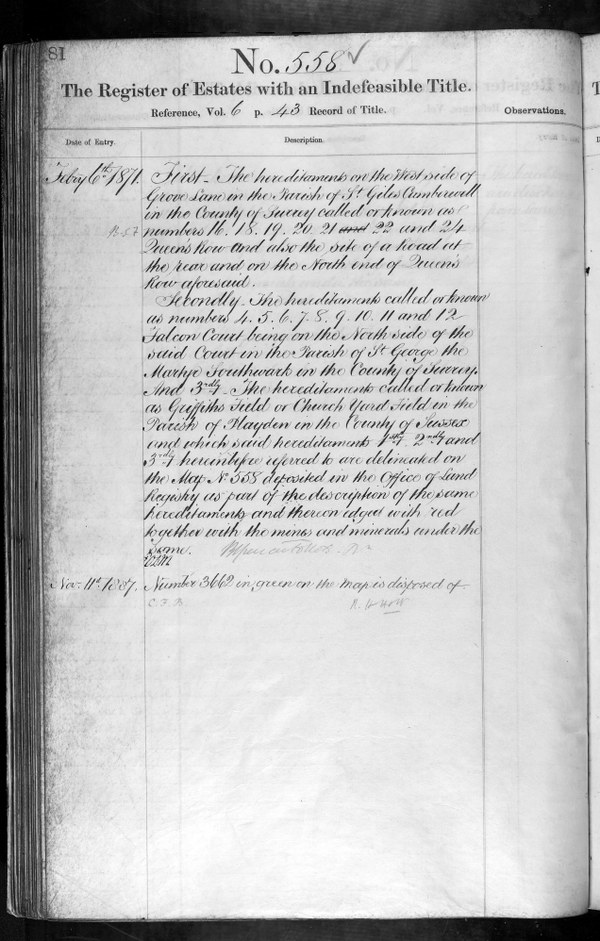 81
No. 558
The Register of Estates with an Indefeasible Title.
Reference, Vol. 6 p. 43 Record of Title.
Observations.
Date of Entry.
Description.
Febry 6th 1871. First - The hereditaments on the West side of
Grove Lane in the Parish of St. Giles Camberwell
in the County of Surrey called or known as
numbers 16. 18. 19. 20. 21 and 22 and 24
Queen's Row and also the site of a Road at
the rear and on the North end of Queen's
Row aforesaid.
Secondly - The hereditaments called or known
as numbers 4. 5. 6. 7. 8. 9. 10. 11 and 12
Falcon Court being on the North side of the
said Court in the Parish of St George the
Martyr Southwark in the County of Surrey.
And 3rdly - The hereditaments called or known
as Griffiths Field or Church Yard Field in the
Parish of Playden in the County of Sussex
and which said hereditaments 1stly 2ndly and
3rdly hereinbefore referred to are delineated on
the Map No 558 deposited in the Office of Land
Registry as part of the description of the same
hereditaments and thereon edged with red
together with the mines and minerals under the
same.
Nov. 11th 1887. Number 3662 in green on the map is disposed of.